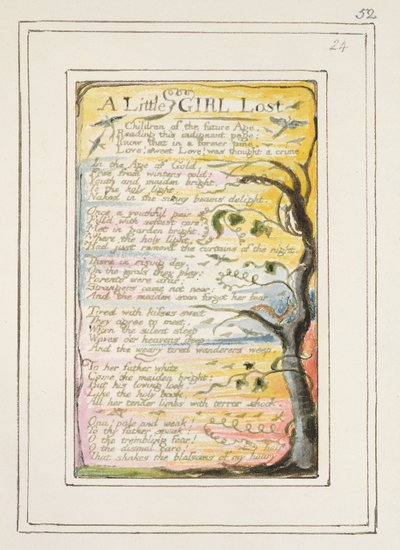 52
24
A Little GIRL Lost
Children of the future Age,
Reading this indignant page;
Know that in a former time,
Love! sweet Love! was thought a crime
In the Age of Gold,
Free from winters cold:
Youth and maiden bright,
To the holy light,
Naked in the sunny beams delight.
Once a youthful pair
Fill'd with softest care:
Met in garden bright,
Where the holy light,
Had just removd the curtains of the night.
There in rising day,
On the grass they play:
Parents were afar:
Strangers came not near:
And the maiden soon forgot her fear.
Tired with kisses sweet
They agree to meet,
When the silent sleep
Waves o'er heavens deep:
And the weary tired wanderers weep.
To her father white
Came the maiden bright:
But his loving look,
Like the holy book,
All her tender limbs with terror shook.
Ona! pale and weak!
To thy father speak:
O the trembling fear!
O the dismal care!
That shakes the blossoms of my hoary hair